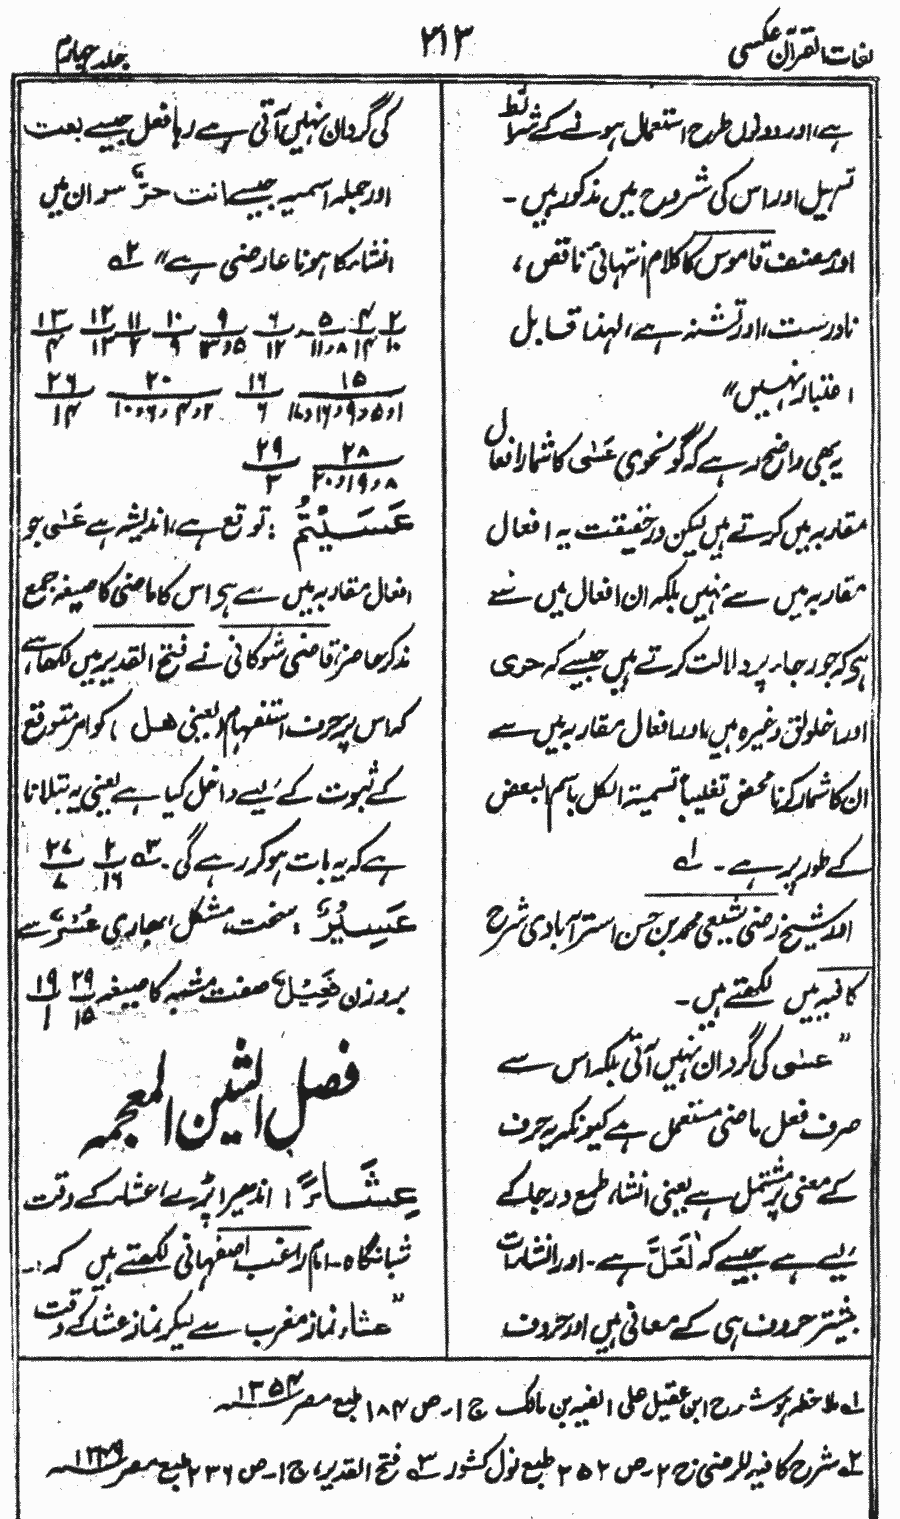 لغات القرآن عکسی
۲۱۳
جلد چہارم
ہے، اور دونوں طرح استعمال ہونے کے شرائط
تسہیل اور اس کی شروح میں مذکور ہیں ۔
اور مصنف قاموس کا کلام انتہائی ناقص،
نادرست، اور تشنہ ہے، لہٰذا قابل
اعتبار نہیں"
یہ بھی واضح رہے کہ گو نحوی عَسٰی کا شمار افعال
مقاربہ میں کرتے ہیں لیکن درحقیقت یہ افعال
مقاربہ میں سے نہیں بلکہ ان افعال میں سے
ہے کہ جو رجاء پر دلالت کرتے ہیں جیسے کہ حری
اور اخلولق وغیرہ ہیں، اور افعال مقاربہ میں سے
ان کا شمار کرنا محض تغلیباً تسمیۃ الکل باسم البعض
کے طور پر ہے ۔ لہ ۱
اور شیخ رضی شیعی محمد بن حسن استرآبادی شرح
کافیہ میں لکھتے ہیں ۔
"عسٰی کی گردان نہیں آتی بلکہ اس سے
صرف فعل ماضی مستعمل ہے کیونکہ یہ حرف
کے معنی پر مشتمل ہے یعنی انشاء طمع و رجا کے
لیے ہے جیسے کہ لَعَلَّ ہے ۔ اور انشاءات
بیشتر حروف ہی کے معانی ہیں اور حروف
کی گردان نہیں آتی ہے رہا فعل جیسے بعت
اور جملہ اسمیہ جیسے انت حرٌّ سو ان میں
انشاء کا ہونا عارضی ہے" ۲ہ
۲/۱۰ ۴/۱۴ ۵/۸ و ۱۱ ۶/۱۲ ۹/۵ و ۱۳ ۱۰/۹ ۱۱/۲ ۱۲/۱۳ ۱۳/۴
۱۵/۱ و ۵ و ۹ و ۱۶ و ۱۸ ۱۶/۶ ۲۰/۲ و ۴ و ۶ و ۱۰ ۲۶/۱۴
۲۸/۸ و ۱۹ و ۲۰ ۲۹/۳
عَسَيْتُمْ : توقع ہے، اندیشہ ہے عَسٰی جو
افعال مقاربہ میں سے ہے اس کا ماضی کا صیغہ جمع
مذکر حاضر قاضی شوکانی نے فتح القدیر میں لکھا ہے،
کہ اس پر حرف استفہام (یعنی ھل) کو امر متوقع
کے ثبوت کے لیے داخل کیا ہے یعنی یہ بتلانا
ہے کہ یہ بات ہو کر رہے گی ۔ ۳ہ ۲/۱۶ ۲۷/۷
عَسِيْرٌ : سخت، مشکل، بھاری عُسْرٌ سے
بروزن فَعِيْلٌ صفت مشبہ کا صیغہ ۲۹/۱۵ ۱۹/۱
فصل الشین المعجمہ
عِشَاءً : اندھیرا پڑے، عشاء کے وقت
شبانگاہ ۔ امام راغب اصفہانی لکھتے ہیں کہ :۔
"عشاء نماز مغرب سے لیکر نماز عشا کے وقت
۱ہ ملاحظہ ہو شرح ابن عقیل علی الفیہ بن مالک ج ۱، ص ۱۸۴ طبع مصر ۱۳۵۴ھ
۲ہ شرح کافیہ للرضی ج ۲، ص ۲۵۲ طبع نول کشور ۳ہ فتح القدیر، ج ۱، ص ۲۳۶ طبع مصر ۱۳۴۹ھ